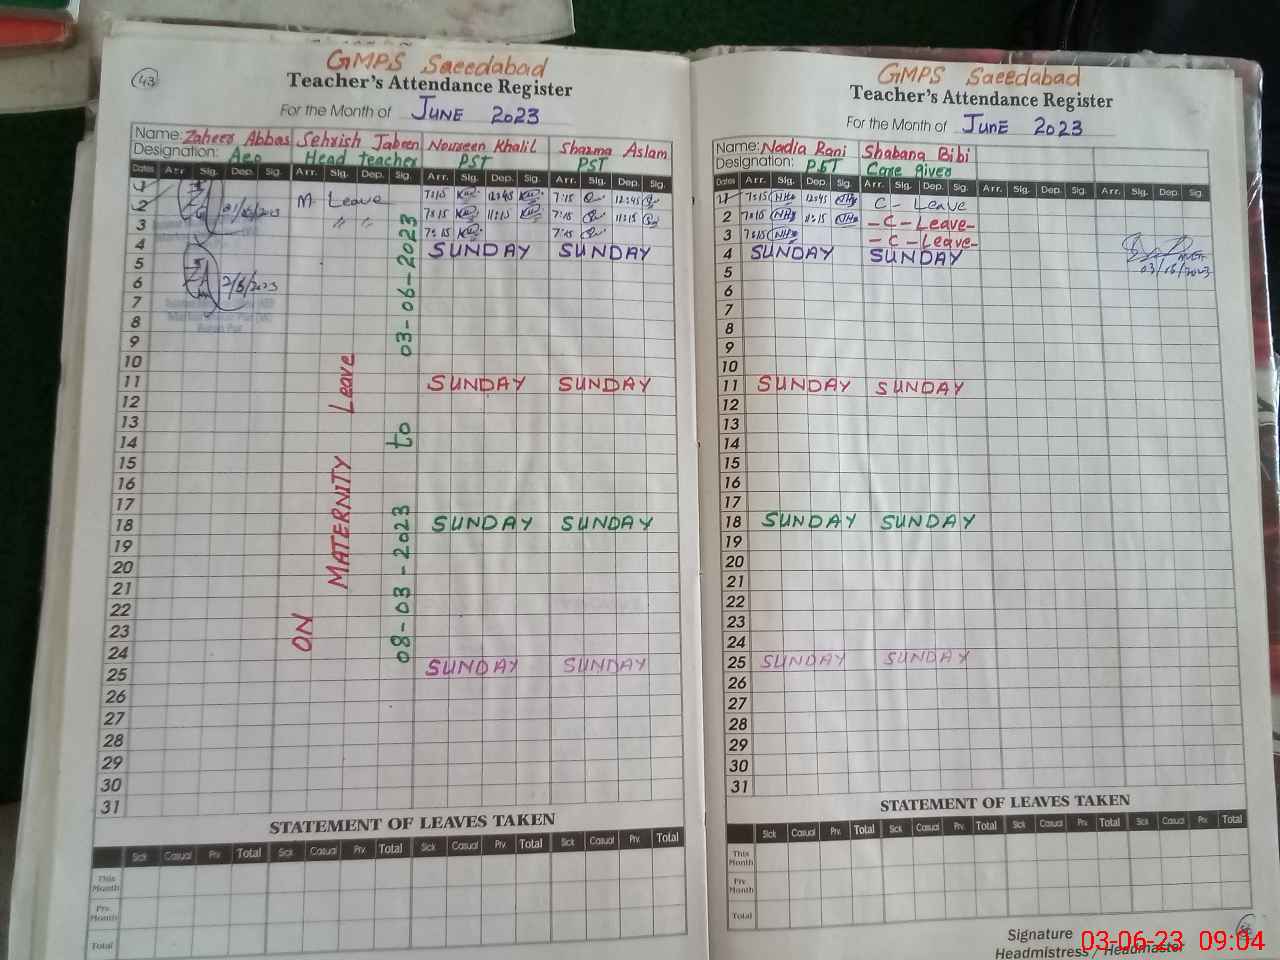 43
GMPS Saeedabad
Teacher's Attendance Register
For the Month of JUNE 2023
Name: Zaheer Abbas Sehrish Jabeen Nourseen Khalil Shazma Aslam
Designation: Aeo Head teacher PST PST
Dates Arr. Sig. Dep. Sig. Arr. Sig. Dep. Sig. Arr. Sig. Dep. Sig. Arr. Sig. Dep. Sig.
1 M. Leave 7:15 12:45 7:15 12:45
2 " " 7:15 11:15 7:15 11:15
3 7:15 7:15
4 SUNDAY SUNDAY
5
6 2/6/2023
7
8
9
10
11 SUNDAY SUNDAY
12
13
14
15
16
17
18 SUNDAY SUNDAY
19
20
21
22
23
24
25 SUNDAY SUNDAY
26
27
28
29
30
31
ON MATERNITY Leave
08-03-2023 to 03-06-2023
STATEMENT OF LEAVES TAKEN
Sick Casual Prv. Total Sick Casual Prv. Total Sick Casual Prv. Total Sick Casual Prv. Total
This Month
Prv. Month
Total
GMPS Saeedabad
Teacher's Attendance Register
For the Month of JUNE 2023
Name: Nadia Rani Shabana Bibi
Designation: PST Care giver
Dates Arr. Sig. Dep. Sig. Arr. Sig. Dep. Sig. Arr. Sig. Dep. Sig. Arr. Sig. Dep. Sig.
1 7:15 12:45 C - Leave
2 7:15 11:15 - C - Leave -
3 7:15 - C - Leave -
4 SUNDAY SUNDAY
03/06/2023
5
6
7
8
9
10
11 SUNDAY SUNDAY
12
13
14
15
16
17
18 SUNDAY SUNDAY
19
20
21
22
23
24
25 SUNDAY SUNDAY
26
27
28
29
30
31
STATEMENT OF LEAVES TAKEN
Sick Casual Prv. Total Sick Casual Prv. Total Sick Casual Prv. Total Sick Casual Prv. Total
This Month
Prv. Month
Total
Signature
Headmistress / Headmaster
03-06-23 09:04